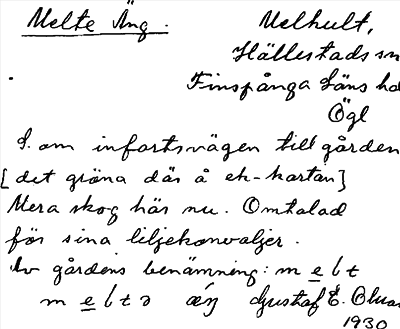 Melte Äng.
Melhult,
Hällestads sn
Finspånga läns hd
Ögl
S. om infartsvägen till gården
[det gröna där å ek-kartan]
Mera skog här nu. Omtalad
för sina liljekonvaljer.
Av gårdens benämning: m e l t
m e l t ə æŋ Gustaf E. Olsson
1930